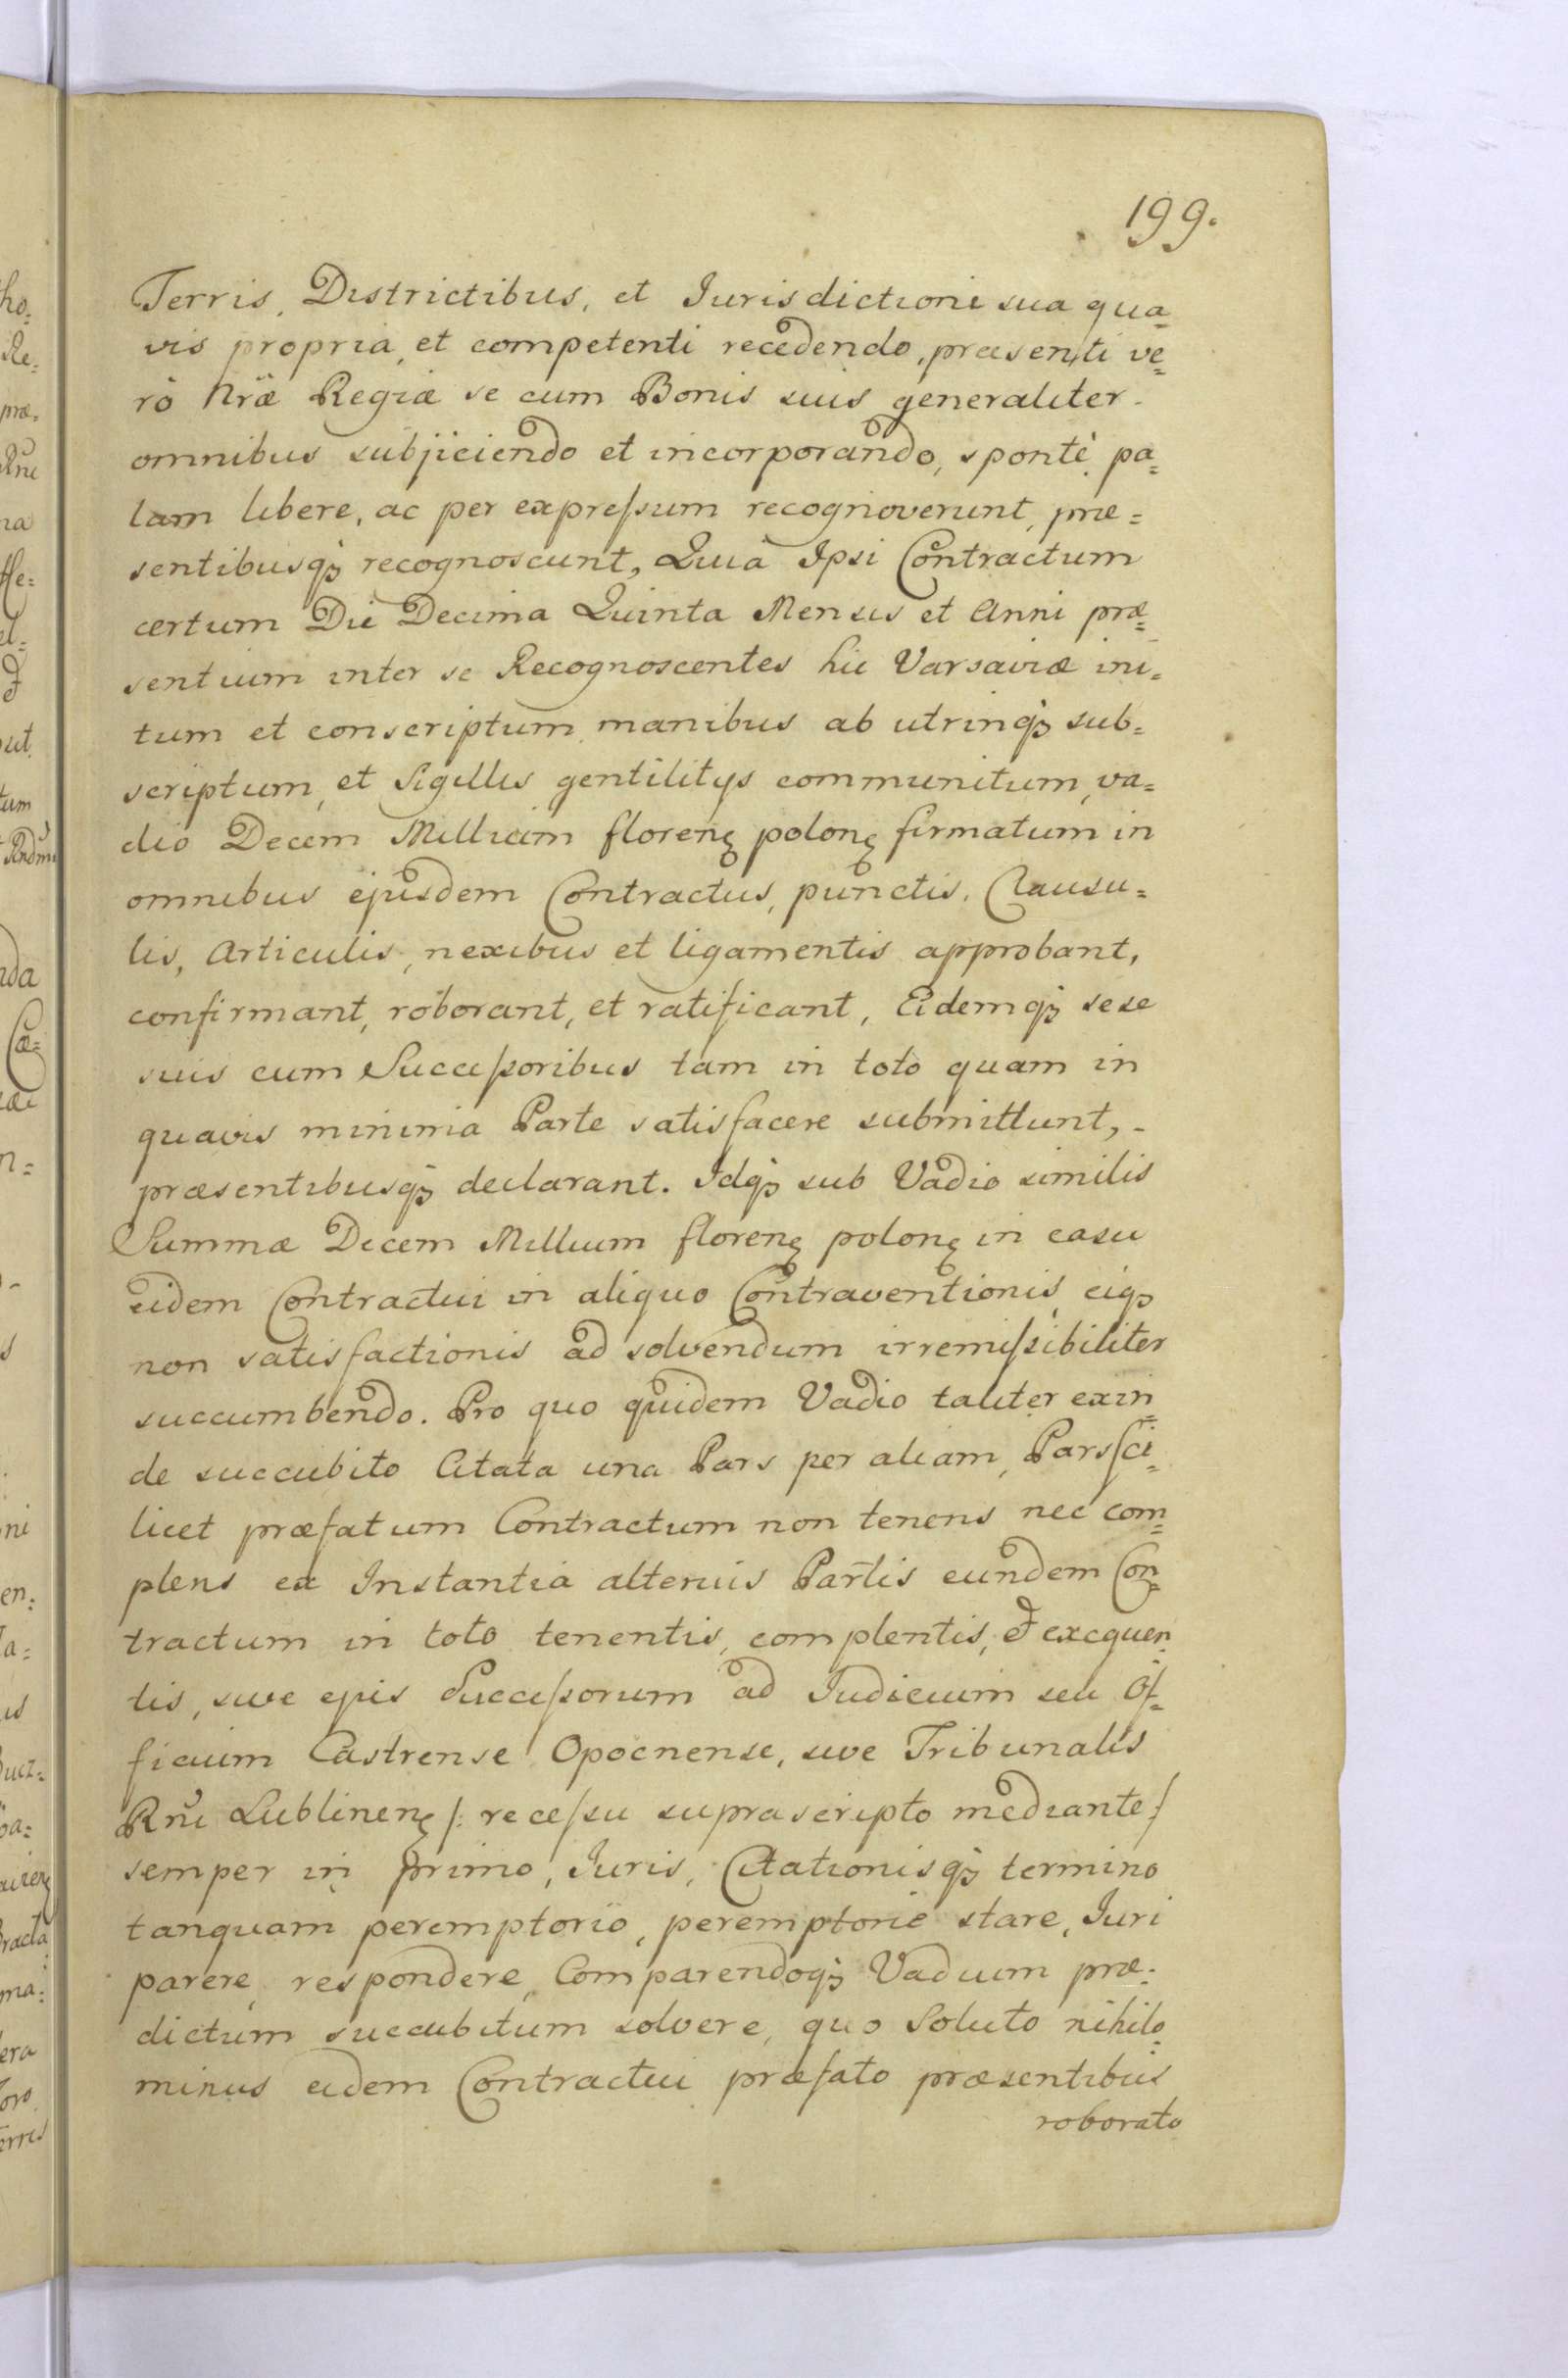 199.
Terris, Districtibus, et Jurisdictioni sua qua=
vis propria, et competenti recedendo, præsenti ve=
rò Nræ Regiæ se cum Bonis suis generaliter
omnibus subjiciendo et incorporando, spontè, pa=
lam libere, ac per expreſsum recognoverunt, præ=
sentibusqꝫ recognoscunt, Quià Ipsi Contractum
certum Die Decima Quinta Mensis et Anni præ=
sentium inter se Recognoscentes hic Varsaviæ ini=
tum et conscriptum, manibus ab utrinqꝫ sub=
scriptum, et Sigillis gentilitijs communitum, va=
dio Decem Millium florenꝫ polonꝫ firmatum in
omnibus ejusdem Contractus, punctis, Clausu=
lis, Articulis, nexibus et ligamentis approbant,
confirmant, roborant, et ratificant, Eidemqꝫ sese
suis cum Succeſsoribus tam in toto quam in
quavis minima Parte satisfacere submittunt, -
præsentibusqꝫ declarant. Idqꝫ sub Vadio similis
Summæ Decem Millium florenꝫ polonꝫ in casu
eidem Contractui in aliquo Contraventionis, eiqꝫ
non satisfactionis ad solvendum irremiſsibiliter
succumbendo. Pro quo quidem Vadio taliter exin=
de succubito Citata una Pars per aliam, Pars ſci=
licet præfatum Contractum non tenens nec com=
plens ex Instantia alterius Partis eundem Con=
tractum in toto tenentis, complentis, et exequen=
tis, sive ejus Succeſsorum ad Judicium seu Of=
ficium Castrense Opocnense, sive Tribunalis
Rni Lublinenꝫ /: receſsu suprascripto mediante :/
semper in primo, Juris, Citationisqꝫ termino
tanquam peremptorio, peremptoriè stare, Juri
parere, respondere, Comparendoqꝫ Vadium præ=
dictum succubitum solvere, quo Soluto nihilo=
minus eidem Contractui præfato præsentibus
roborato
ho=
Re=
præ=
Rni
na
ffe=
el=
et
ut
tum
nda
Cæ=
n=
s
ni
en=
a=
us
racta
ma=
era
oro
erris